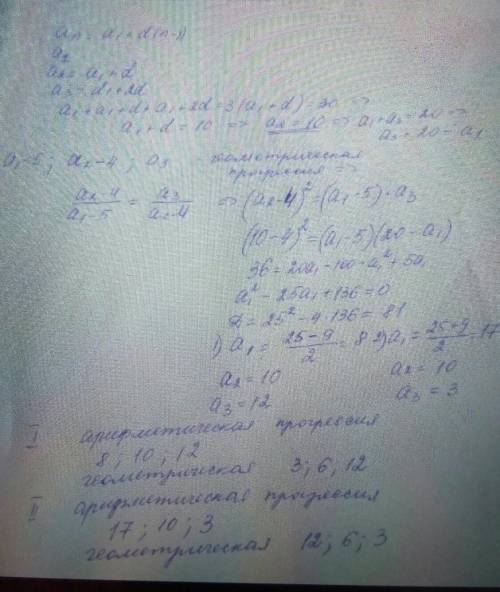 an = a1 + d(n-1)
a2
a2 = a1 + d
a3 = a1 + 2d
a1 + a1 + d + a1 + 2d = 3(a1 + d) = 30 =>
a1 + d = 10 => a2 = 10 => a1 + a3 = 20 =>
a3 = 20 - a1
a1-5 ; a2-4 ; a3 - геометрическая
прогрессия =>
(a2-4)/(a1-5) = a3/(a2-4) => (a2-4)² = (a1-5)·a3
(10-4)² = (a1-5)(20-a1)
36 = 20a1 - 100 - a1² + 5a1
a1² - 25a1 + 136 = 0
D = 25² - 4·136 = 81
1) a1 = (25-9)/2 = 8 2) a1 = (25+9)/2 = 17
a2 = 10 a2 = 10
a3 = 12 a3 = 3
I арифметическая прогрессия
8 ; 10 ; 12
геометрическая 3; 6; 12
II арифметическая прогрессия
17 ; 10 ; 3
геометрическая 12; 6; 3